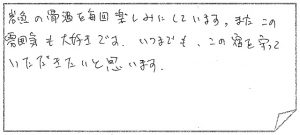 岩魚の骨酒を毎回楽しみにしています。またこの
雰囲気も大好きです。いつまでも、この宿を守って
いただきたいと思います。